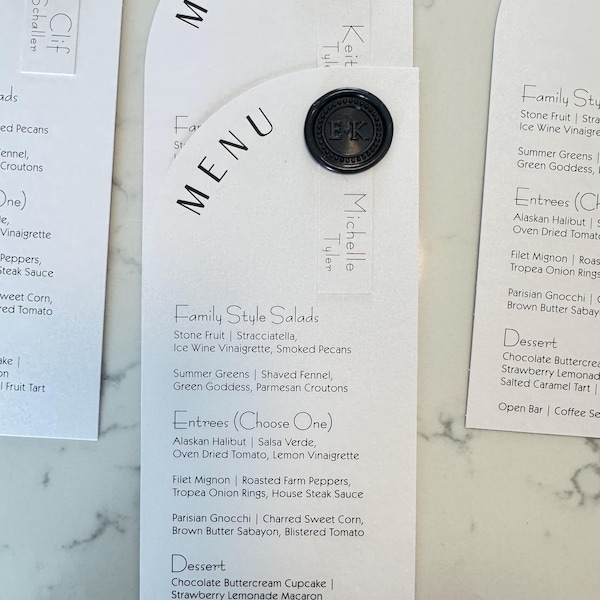 Clif
Schaller
ads
oked Pecans
Fennel,
Croutons
One)
de,
inaigrette
Peppers,
Steak Sauce
weet Corn,
ered Tomato
ake |
on
l Fruit Tart
M
Keit
Tyle
Fa
MENU
E K
Michelle
Tyler
Family Style Salads
Stone Fruit | Stracciatella,
Ice Wine Vinaigrette, Smoked Pecans
Summer Greens | Shaved Fennel,
Green Goddess, Parmesan Croutons
Entrees (Choose One)
Alaskan Halibut | Salsa Verde,
Oven Dried Tomato, Lemon Vinaigrette
Filet Mignon | Roasted Farm Peppers,
Tropea Onion Rings, House Steak Sauce
Parisian Gnocchi | Charred Sweet Corn,
Brown Butter Sabayon, Blistered Tomato
Dessert
Chocolate Buttercream Cupcake |
Strawberry Lemonade Macaron
Family Sty
Stone Fruit | Stra
Ice Wine Vinaigre
Summer Greens |
Green Goddess,
Entrees (Cho
Alaskan Halibut | S
Oven Dried Tomato
Filet Mignon | Roas
Tropea Onion Rings
Parisian Gnocchi | C
Brown Butter Sabay
Dessert
Chocolate Buttercrea
Strawberry Lemonade
Salted Caramel Tart |
Open Bar | Coffee Se